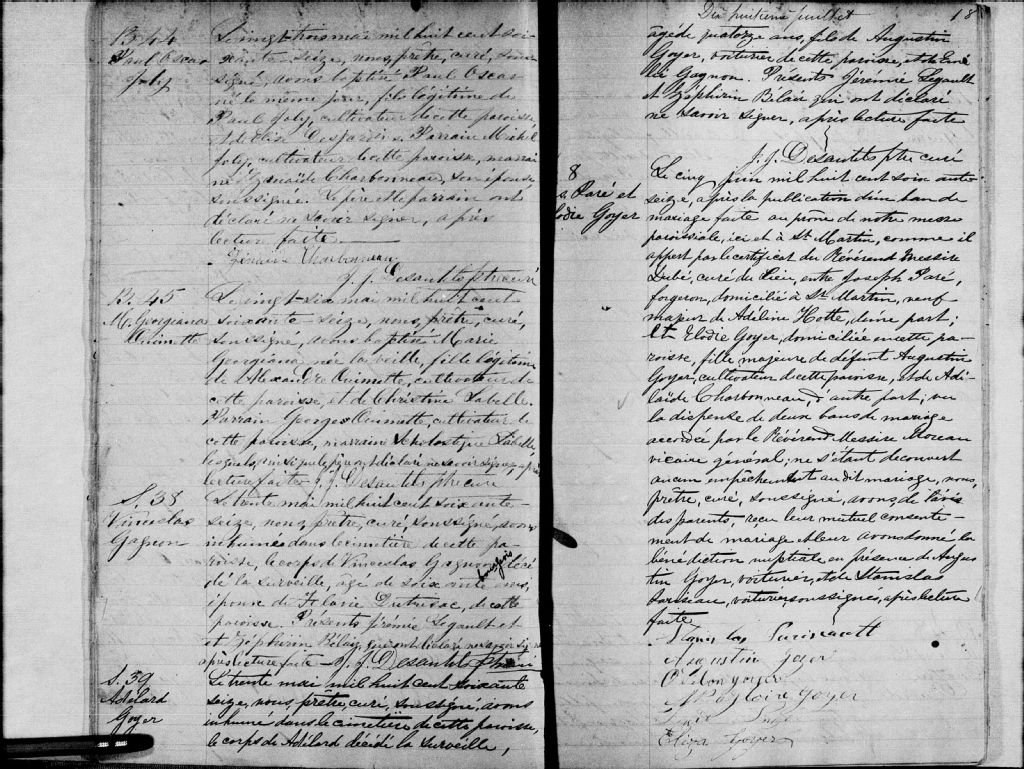 B. 44
Paul Oscar
Joly
Le vingt-trois mai mil huit cent soi-
xante-seize, nous, prêtre, curé, sous-
signé, avons baptisé Paul Oscar
né le même jour, fils légitime de
Paul Joly, cultivateur de cette paroisse,
et d'Elise Desjardins. Parrain Michel
Joly, cultivateur de cette paroisse, marrai
ne Zénaïde Charbonneau, son épouse
soussignée. Le père et le parrain ont
déclaré ne savoir signer, après
lecture faite.
Zénaïde Charbonneau
J. J. Desautels ptre curé
B. 45
M. Georgiana
Ouimette
Le vingt-six mai mil huit cent
soixante-seize, nous, prêtre, curé,
soussigné, avons baptisé Marie
Georgiana née la veille, fille légitime
de Alexandre Ouimette, cultivateur de
cette paroisse, et de Christine Labelle.
Parrain Georges Ouimette, cultivateur de
cette paroisse, marraine Scholastique Labelle,
lesquels ainsi que le père ont déclaré ne savoir signer, après
lecture faite. J. J. Desautels ptre curé
S. 38
Vinceslas
Gagnon
Le trente mai mil huit cent soixante-
seize, nous, prêtre, curé, soussigné, avons
inhumé dans le cimetière de cette pa-
roisse, le corps de Vinceslas Gagnon décé
dé la surveille, agé de soixante ans,
époux de Flavie Dutrisac, de cette
paroisse. Présents Jérémie Legault et
et Zéphirin Bélair, qui ont déclaré ne savoir signer
après lecture faite - J. J. Desautels ptre curé
S. 39
Adélard
Goyer
Le trente mai mil huit cent soixante
seize, nous, prêtre, curé, soussigné, avons
inhumé dans le cimetière de cette paroisse,
le corps de Adélard décédé la surveille,
Dix huitième feuillet
18
âgé de quatorze ans, fils de Augustin
Goyer, voiturier de cette paroisse, et de
Gagnon. Présents Jérémie Legault
et Zéphirin Bélair qui ont déclaré
ne savoir signer, après lecture faite
J. J. Desautels ptre curé
8
Paré et
lodie Goyer
Le cinq juin mil huit cent soixante
seize, après la publication d'un ban de
mariage faite au prône de notre messe
paroissiale, ici et à St Martin, comme il
appert par le certificat du Révérend Messire
Dubé, curé du lieu, entre Joseph Paré,
forgeron, domicilié à St Martin, veuf
majeur de Adéline Hotte, d'une part;
Et Elodie Goyer, domiciliée en cette pa-
roisse, fille majeure de défunt Augustin
Goyer, cultivateur de cette paroisse, et de Adé-
laïde Charbonneau, d'autre part; vu
la dispense de deux bans de mariage
accordée par le Révérend Messire Moreau
vicaire général; ne s'étant découvert
aucun empêchement au dit mariage, nous,
prêtre, curé, soussigné, avons, de l'avis
des parents, reçu leur mutuel consente-
ment de mariage et leur avons donné la
bénédiction nuptiale en présence de Augus
tin Goyer, voiturier, et de Stanislas
Pariseau, voiturier, soussignés, après lecture
faite
Augustin Goyer
Goyer
Eliza Goyer